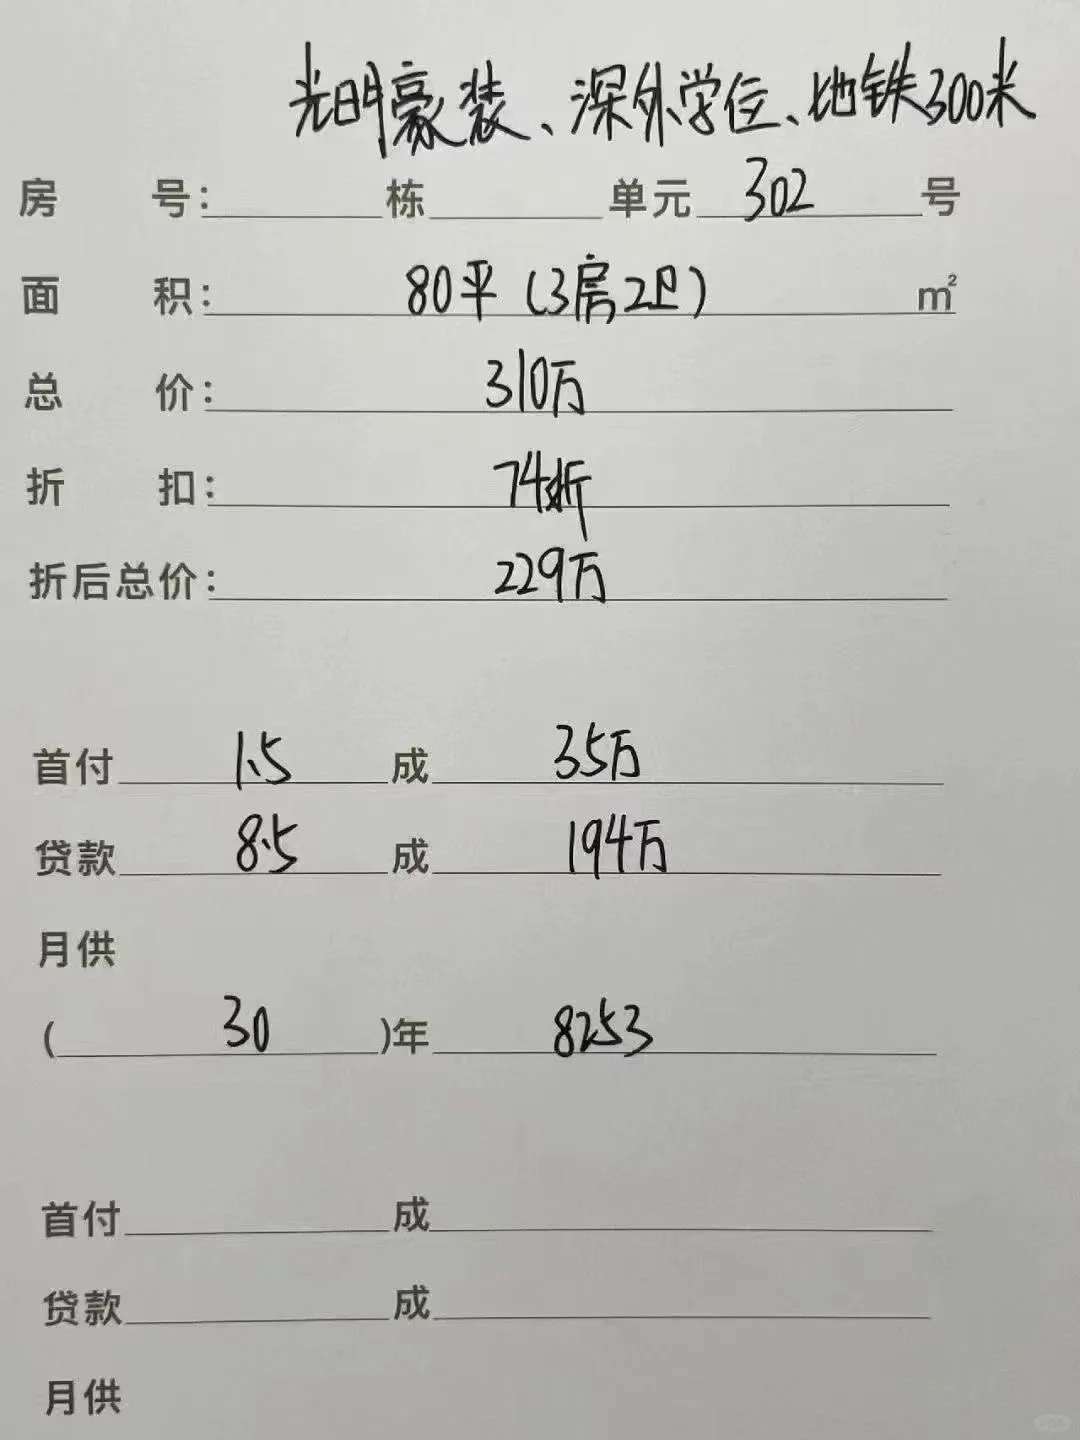 光明豪装、深外学位、地铁300米
房 号：栋 单元 302 号
面 积：80平（3房2卫） m²
总 价：310万
折 扣：74折
折后总价：229万
首付 1.5 成 35万
贷款 8.5 成 194万
月供
( 30 )年 8253
首付 成
贷款 成
月供